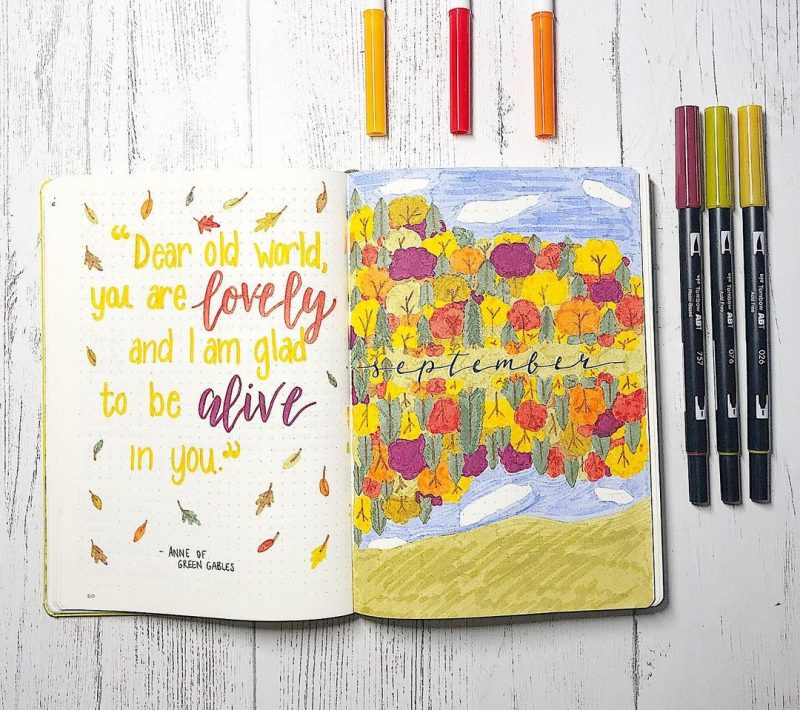 “Dear old world,
you are lovely
and I am glad
to be alive
in you.”
- ANNE OF
GREEN GABLES
50
september
Tombow ABT
757
Tombow ABT
Acid Free
076
Tombow ABT
Acid Free
026